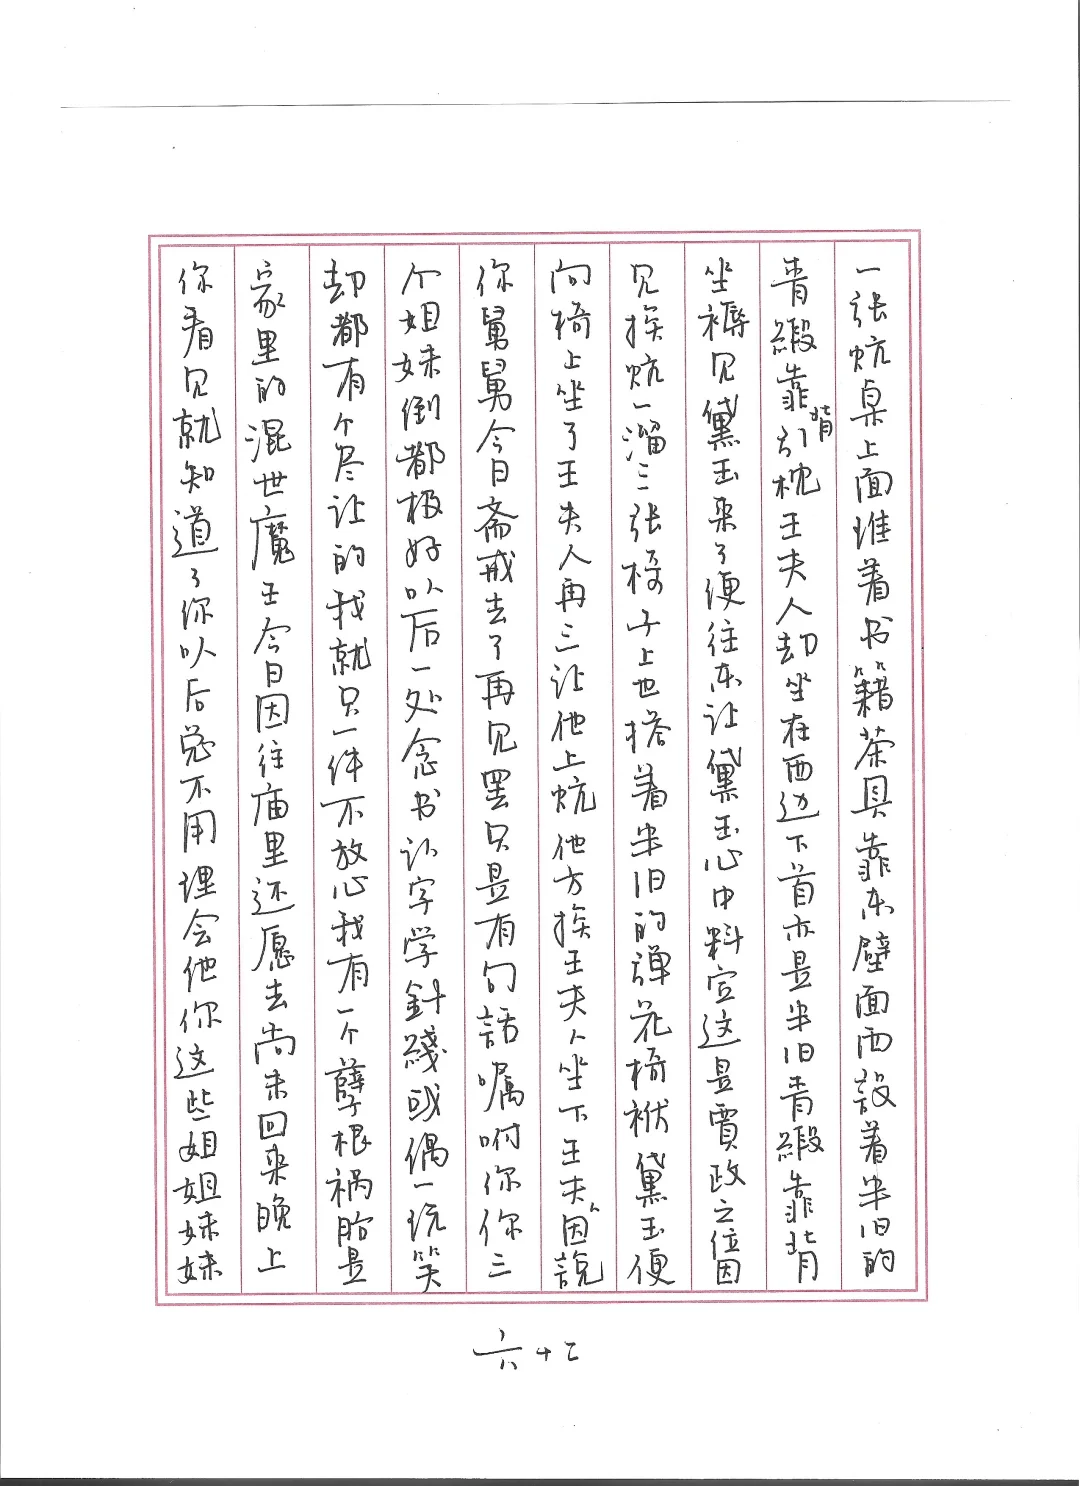 一张炕桌上面堆着书籍茶具靠东壁面西設着半旧的
青緞靠背引枕王夫人却坐在西边下首亦是半旧青緞靠背
坐褥见黛玉来了便往东让黛玉心中料定这是賈政之位因
见挨炕一溜三张椅子上也搭着半旧的弹花椅袱黛玉便
向椅上坐了王夫人再三让他上炕他方挨王夫人坐下王夫人因説
你舅舅今日斋戒去了再见罢只是有句話嘱咐你你三
个姐妹倒都极好以后一处念书认字学針綫或偶一玩笑
却都有个尽让的我就只一件不放心我有一个孽根祸胎是
家里的混世魔王今日因往庙里还愿去尚未回来晚上
你看见就知道了你以后总不用理会他你这些姐姐妹妹
六十七